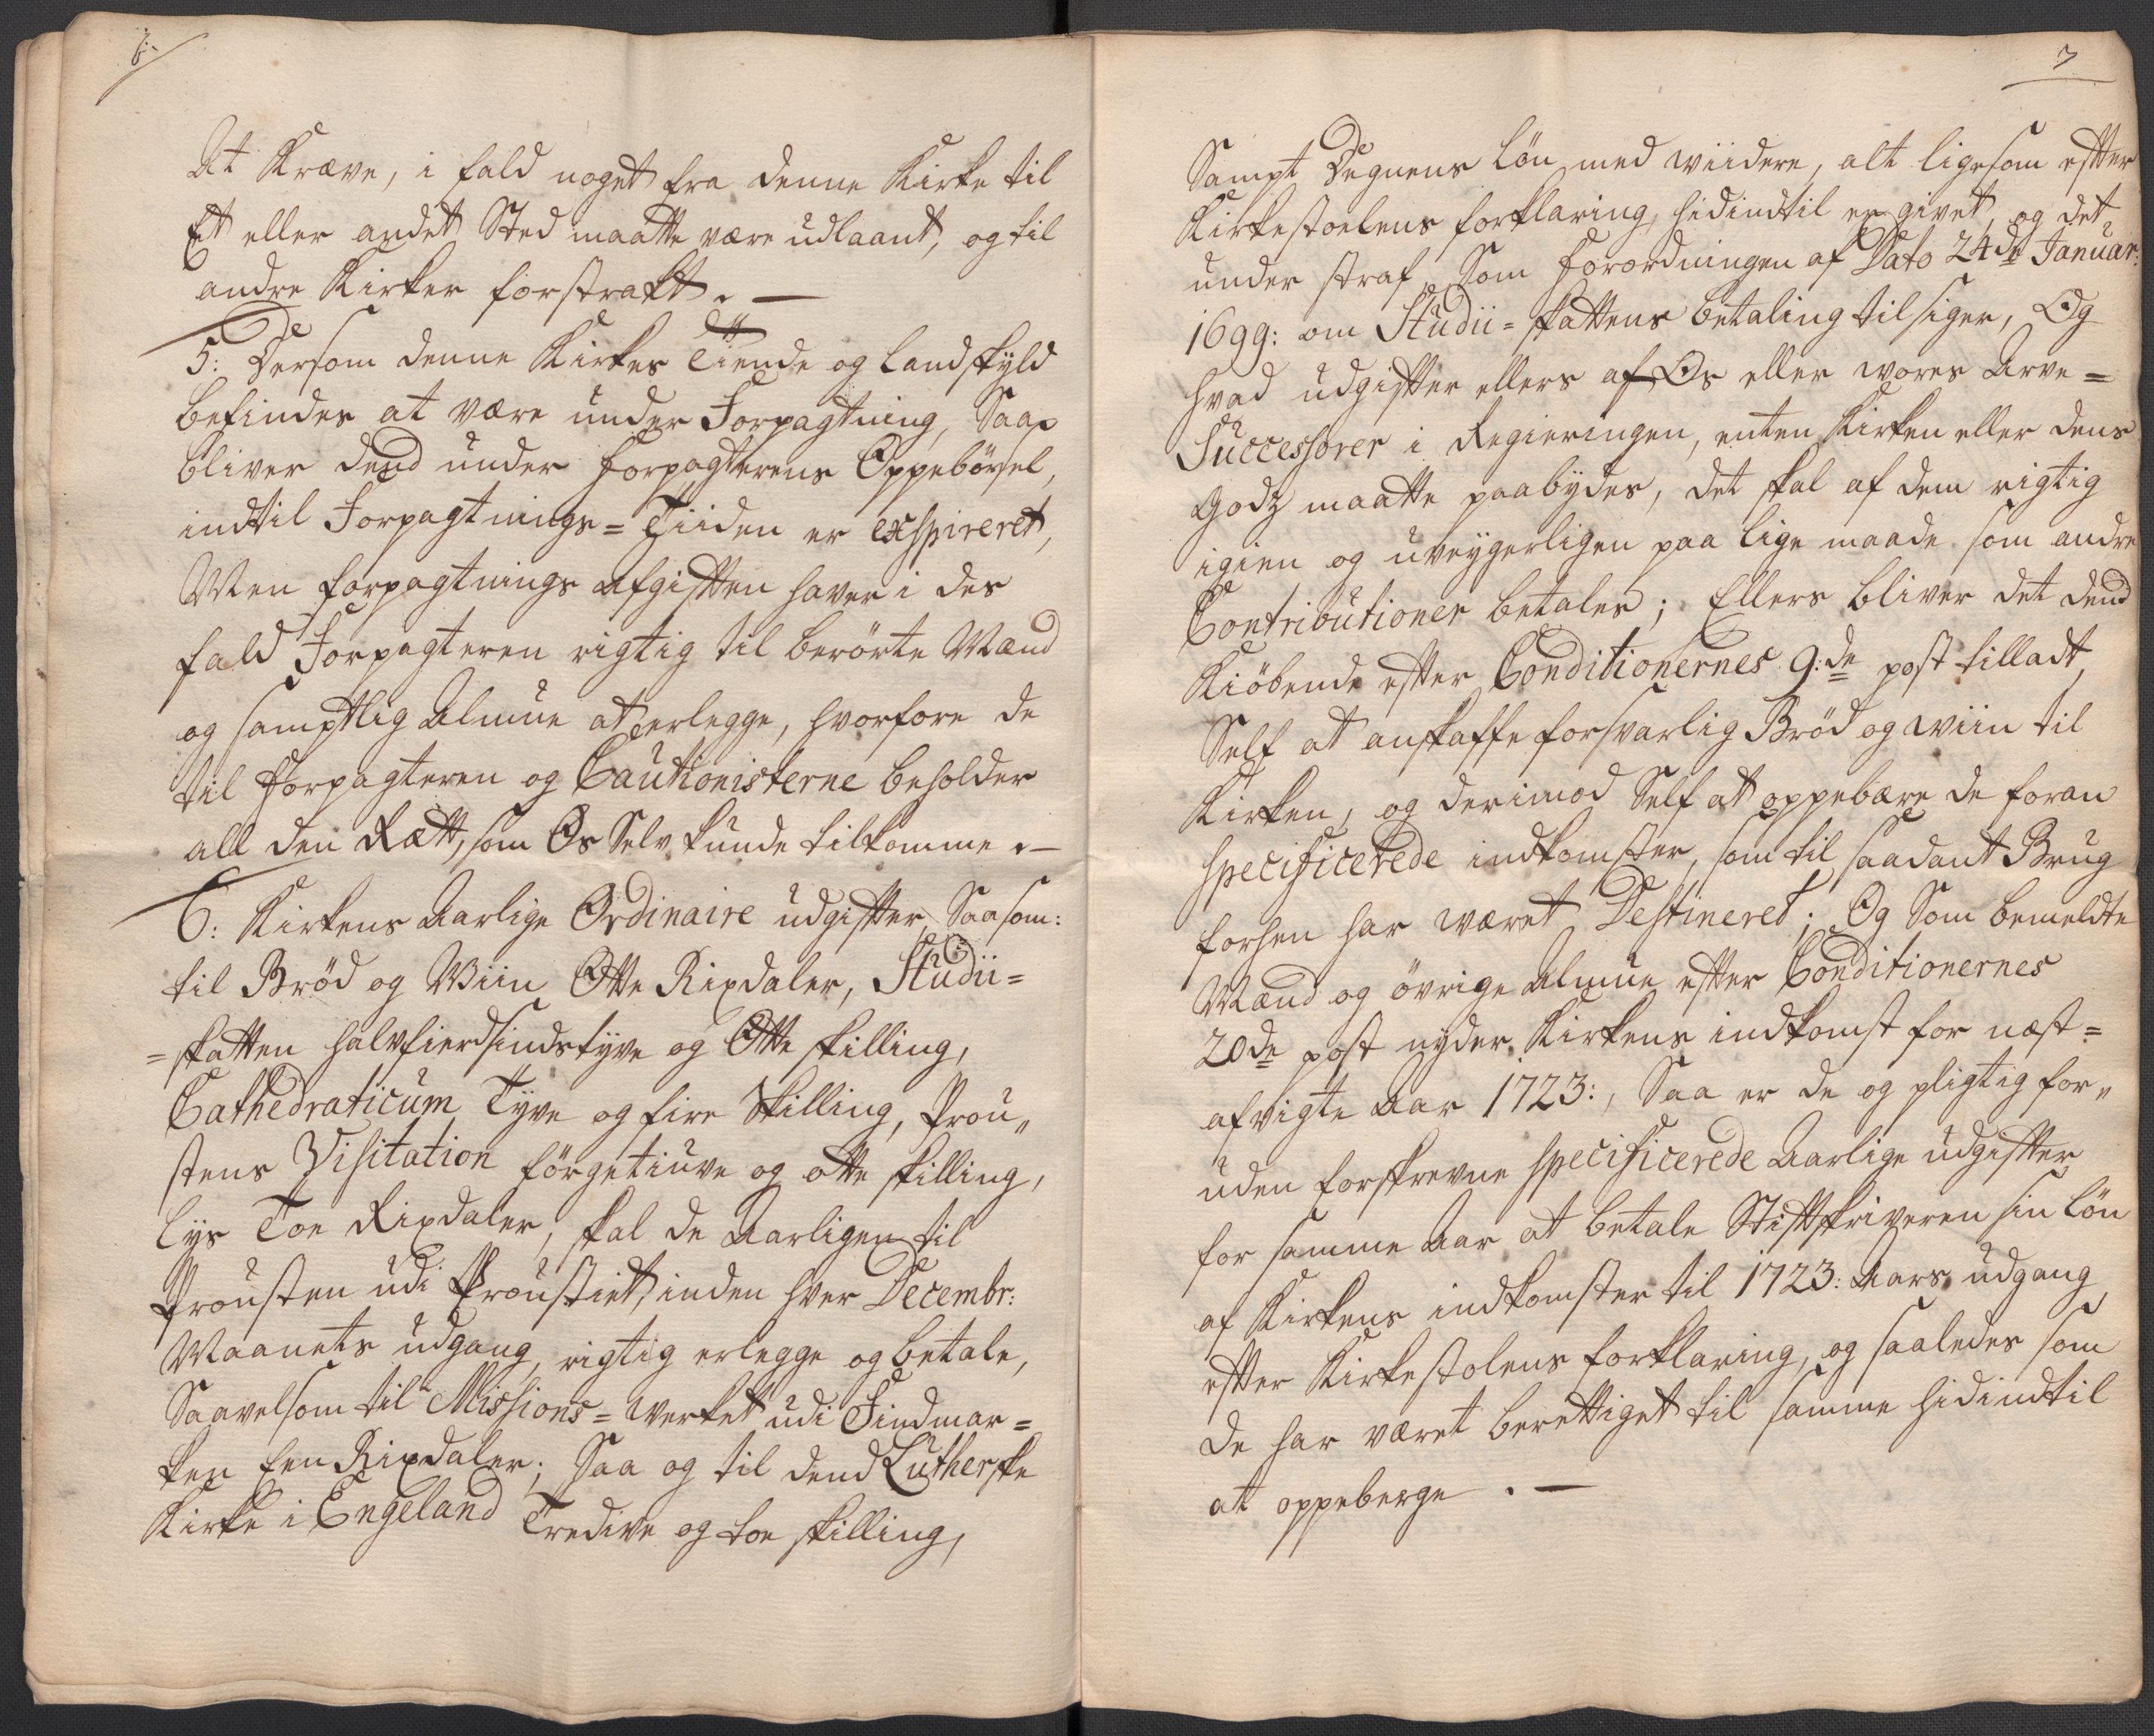 6.
At Kræve, i fald noget fra denne Kirke til
Et eller andet Sted maatte være udlaant, og til
andre Kirker forstrakt. —
5: Dersom denne Kirkes Tiende og Landskyld
befindes at være under Forpagtning, Saa
bliver dend under Forpagterens Oppebörsel,
indtil Forpagtnings= Tiiden er exspireret,
Men forpagtnings Afgiften haver i des
fald Forpagteren rigtig til berörte Mænd
og samptlig Almue at erlegge, hvorfore de
til Forpagteren og Cautionisterne beholder
all den Rætt, som Os Selv kunde tilkomme. —
6: Kirkens Aarlige Ordinaire udgifter, Saasom:
til Bröd og Viin Otte Rixdaler, Studii=
=skatten halvfierdsindstyve og Otte skilling,
Cathedraticum Tyve og fire Skilling, Prou„
stens Visitation förgetiuve og otte skilling,
Lys Toe Rixdaler, skal de Aarligen til
Prousten udi Proustiet, inden hver Decembr:
Maanets udgang, rigtig erlegge og betale,
Saavelsom til Missions= Verket udi Findmar=
ken Een Rixdaler; Saa og til dend Lutherske
Kirke i Engeland Tredive og toe skilling,
7
Sampt Degnens Lön med wiidere, alt ligesom efter
Kirkestoelens forklaring, hidindtil er givet, og det
under straf, Som Forordningen af Dato 24de Januar:
1699: om Studii= skattens betaling tilsiger, Og
hvad udgifter ellers af Os eller wores Arve=
Successorer i Regieringen, enten Kirken eller dens
Godz maatte paabydes, det skal af dem rigtig
igien og uveygerligen paa lige maade som andre
Contributioner betales; Ellers bliver det dend
Kiöbende efter Conditionernes 9:de post tilladt,
Self at anskaffe forsvarlig Bröd og wiin til
Kirken, og derimod Self at oppebære de foran
specificerede indkomster, som til saadant Brug
forhen har været Destineret; Og Som bemeldte
Mænd og övrige Almue efter Conditionernes
20de post nyder Kirkens indkomst for næst=
afvigte Aar 1723:, Saa er de og pligtig for„
uden forskrevne specificerede Aarlige udgifter
for samme Aar at betale Stiftskriveren sin Lön
af Kirkens indkomster til 1723: Aars udgang,
efter Kirkestolens forklaring, og saaledes som
de har været berettiget til samme hidindtil
at oppeberge. —